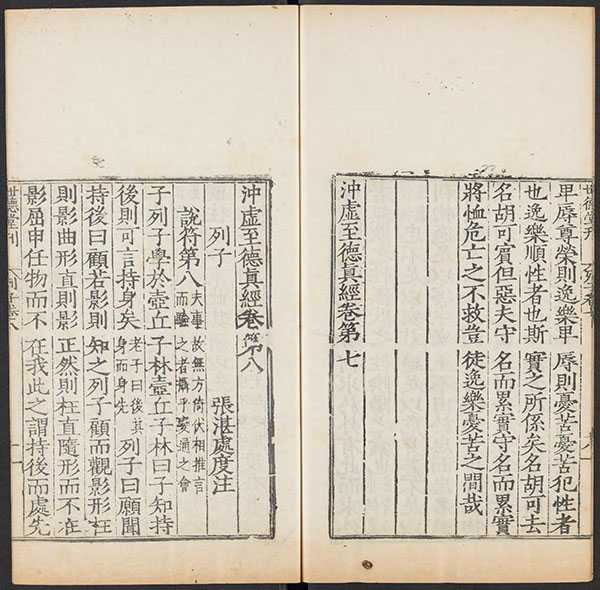 世德堂刊
卑辱尊榮則逸樂卑辱則憂苦憂苦犯性者
也逸樂順性者也斯實之所係矣名胡可去
名胡可賓但惡夫守名而累實守名而累實
將恤危亡之不救豈徒逸樂憂苦之間哉
沖虛至德真經卷第七
沖虛至德真經卷第八
列子 張湛處度注
說符第八 夫事故無方倚伏相推言
而驗之者攝乎變通之會
子列子學於壺丘子林壺丘子林曰子知持
後則可言持身矣 老子曰後其身而身先 列子曰願聞
持後曰顧若影則知之列子顧而觀影形枉
則影曲形直則影正然則枉直隨形而不在
影屈申任物而不在我此之謂持後而處先
世德堂刊 列子卷八 一